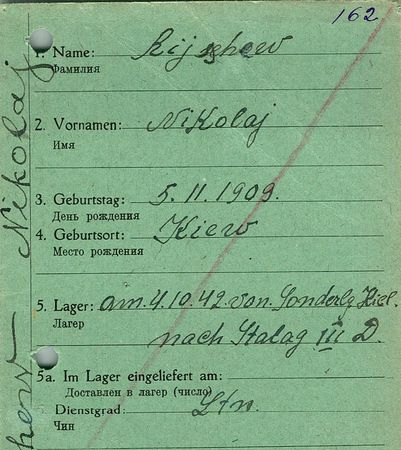 162
1. Name: Kijschew
Фамилия
2. Vornamen: Nikolaj
Имя
3. Geburtstag: 5. 11. 1909.
День рождения
4. Geburtsort: Kiew
Место рождения
5. Lager: am. 4.10.42 von Sonderlg Kiel.
Лагер
nach Stalag III D.
5a. Im Lager eingeliefert am:
Доставлен в лагер (число)
Dienstgrad: Ltn.
Чин
Nikolaj